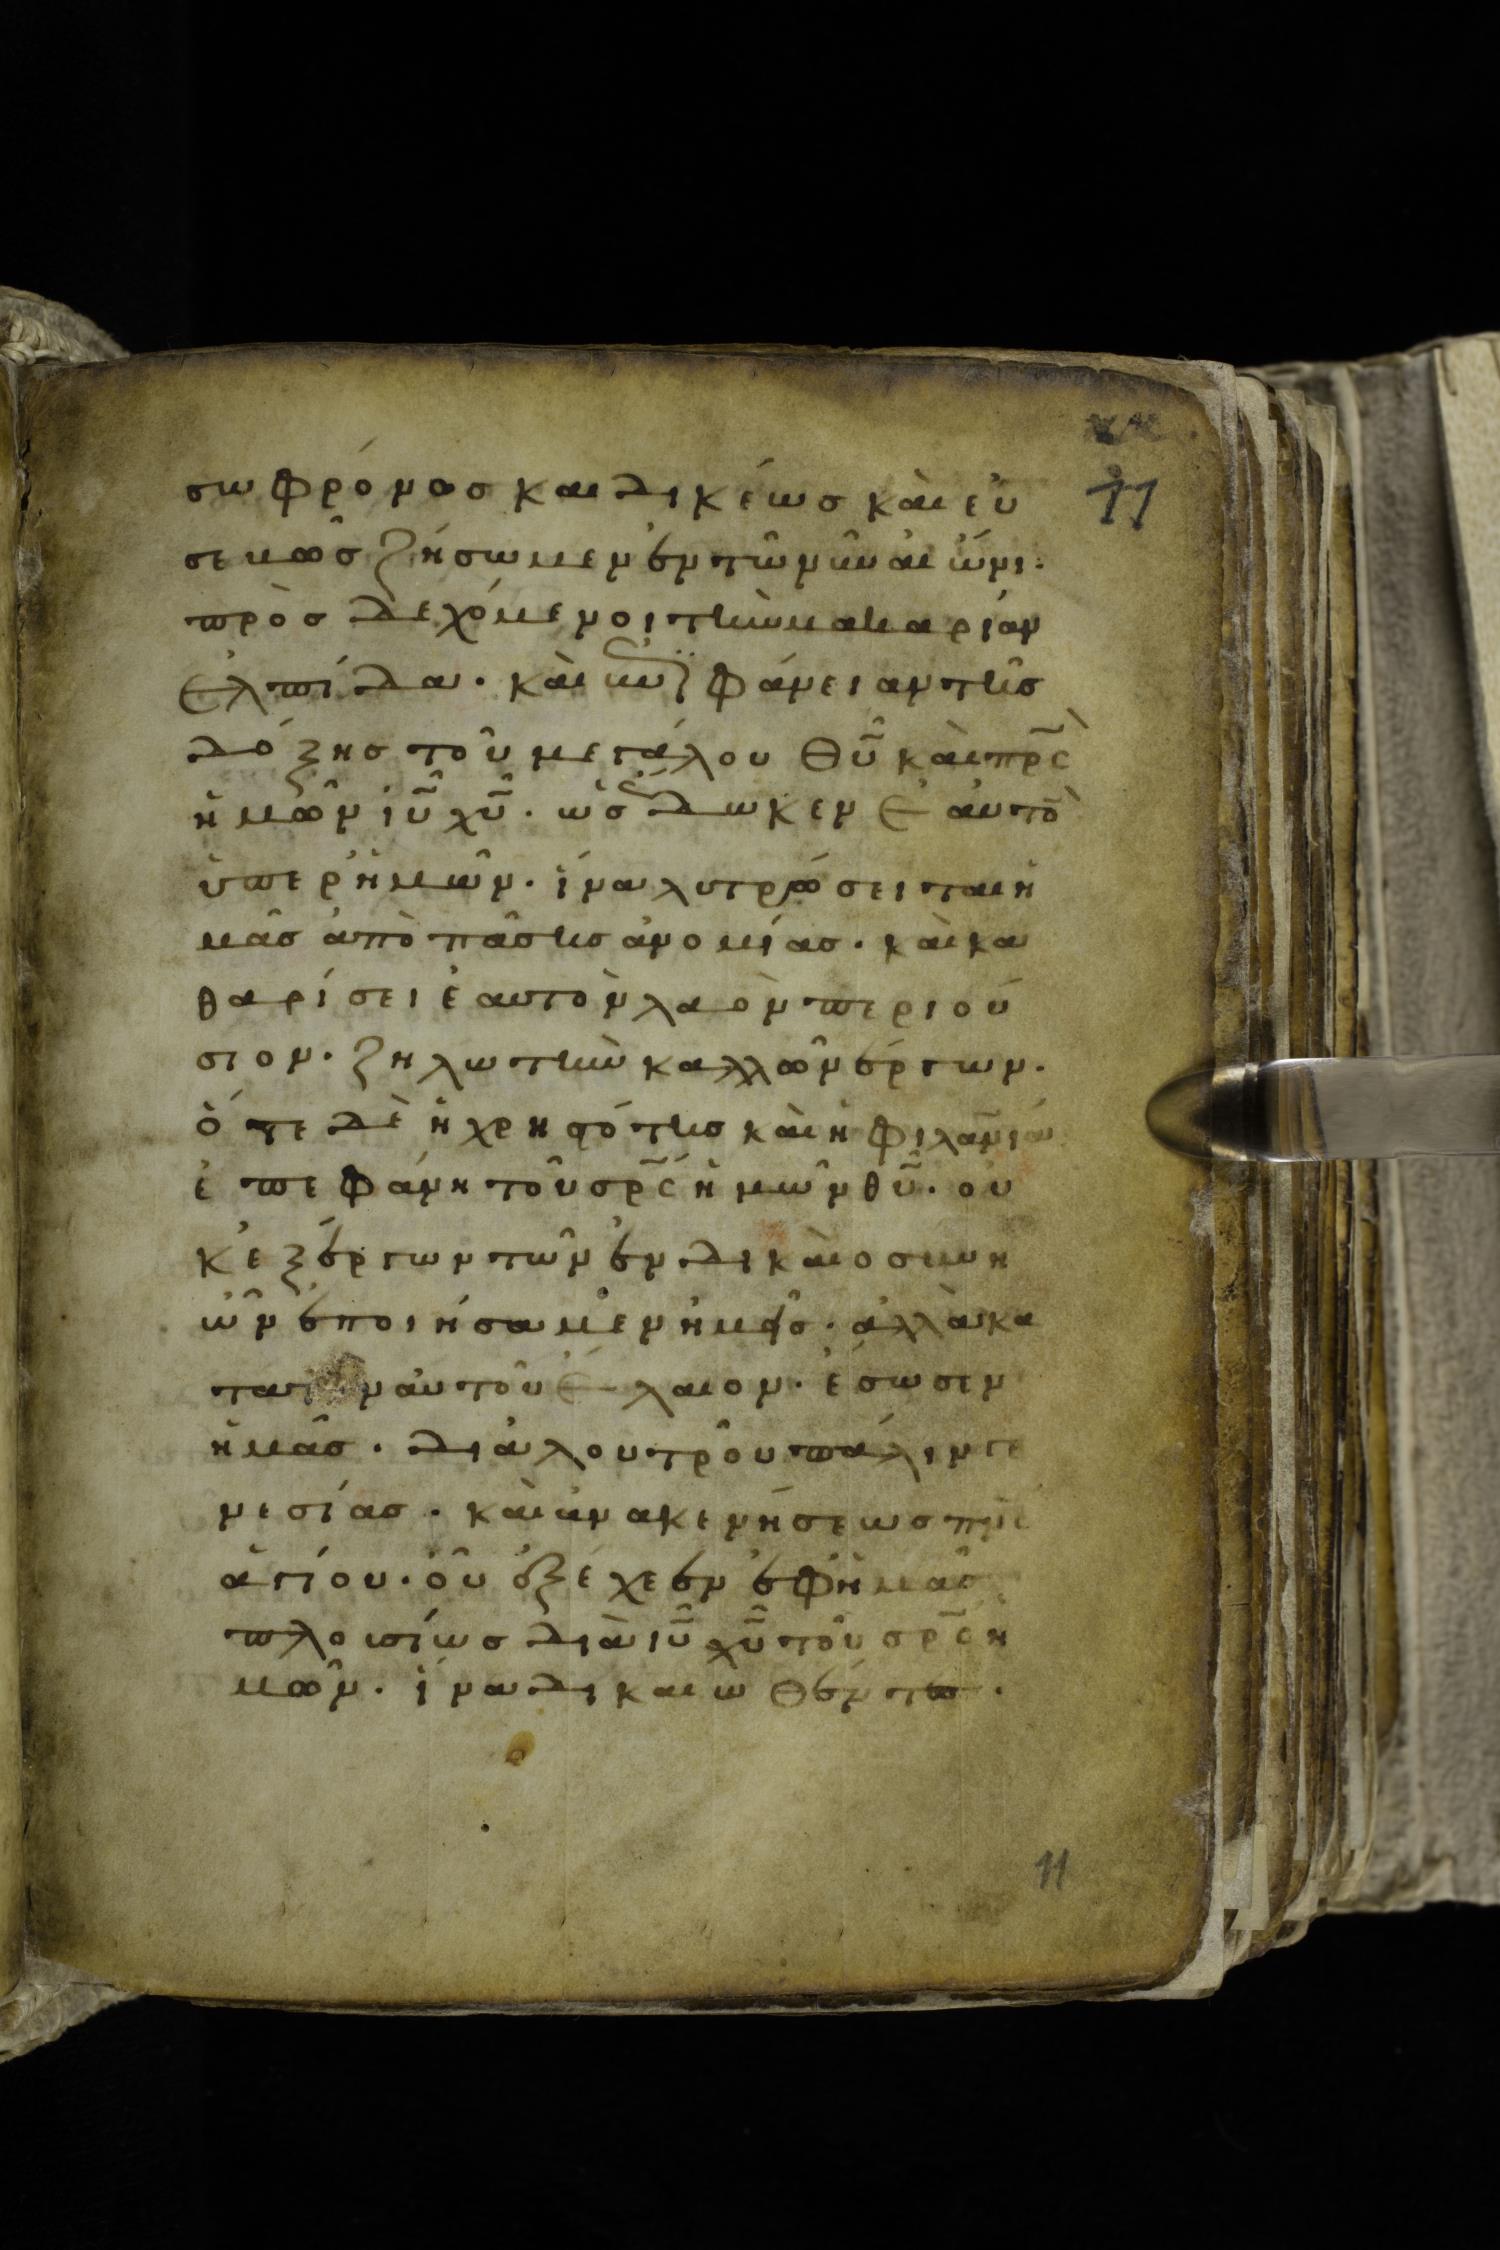 11
σωφρόνος και δικέως καὶ εὐ
σεβῶς ζήσωμεν ἐν τῶ νῦν αἰῶνι.
πρὸς δεχόμενοι τὴν μακαρίαν
ἐλπίδα. καὶ ἐπιφάνειαν τῆς
δόξης τοῦ μεγάλου θῦ καὶ πρς
ἡμῶν ἰῦ χῦ. ὡς ἔδωκεν ἑαυτὸ
ὑπερ ἡμῶν. ἵνα λυτρώσειται ἡ
μᾶς ἀπὸ πᾶσης ἀνομίας. καὶ κα
θαρίσει ἑαυτὸν λαὸν περιού
σιον. ζηλωτὴν καλλῶν ἔργων.
ὅτε δὲ ἡ χρηστότης καὶ ἡ φιλανία
ἐπεφάνη τοῦ σρς ἡμῶν θῦ. οὐ
κ ἐξ ἔργων τῶν ἐν δικαιοσύνη
ὧν ἐποιήσαμεν ἡμεῖς. ἀλλὰ κα
τα τὸν αὐτοῦ ἔλαιον. ἔσωσεν
ἡμᾶς. διὰ λουτροῦ πάλινγε
νεσίας. καὶ ἀνακενήσεως πνς
ἁγίου. οὗ ἐξέχεεν ἐφ ἡμᾶς
πλουσίως διὰ ἰῦ χῦ τοῦ σρς ἡ
μῶν. ἵνα δικαιωθέντες.
11